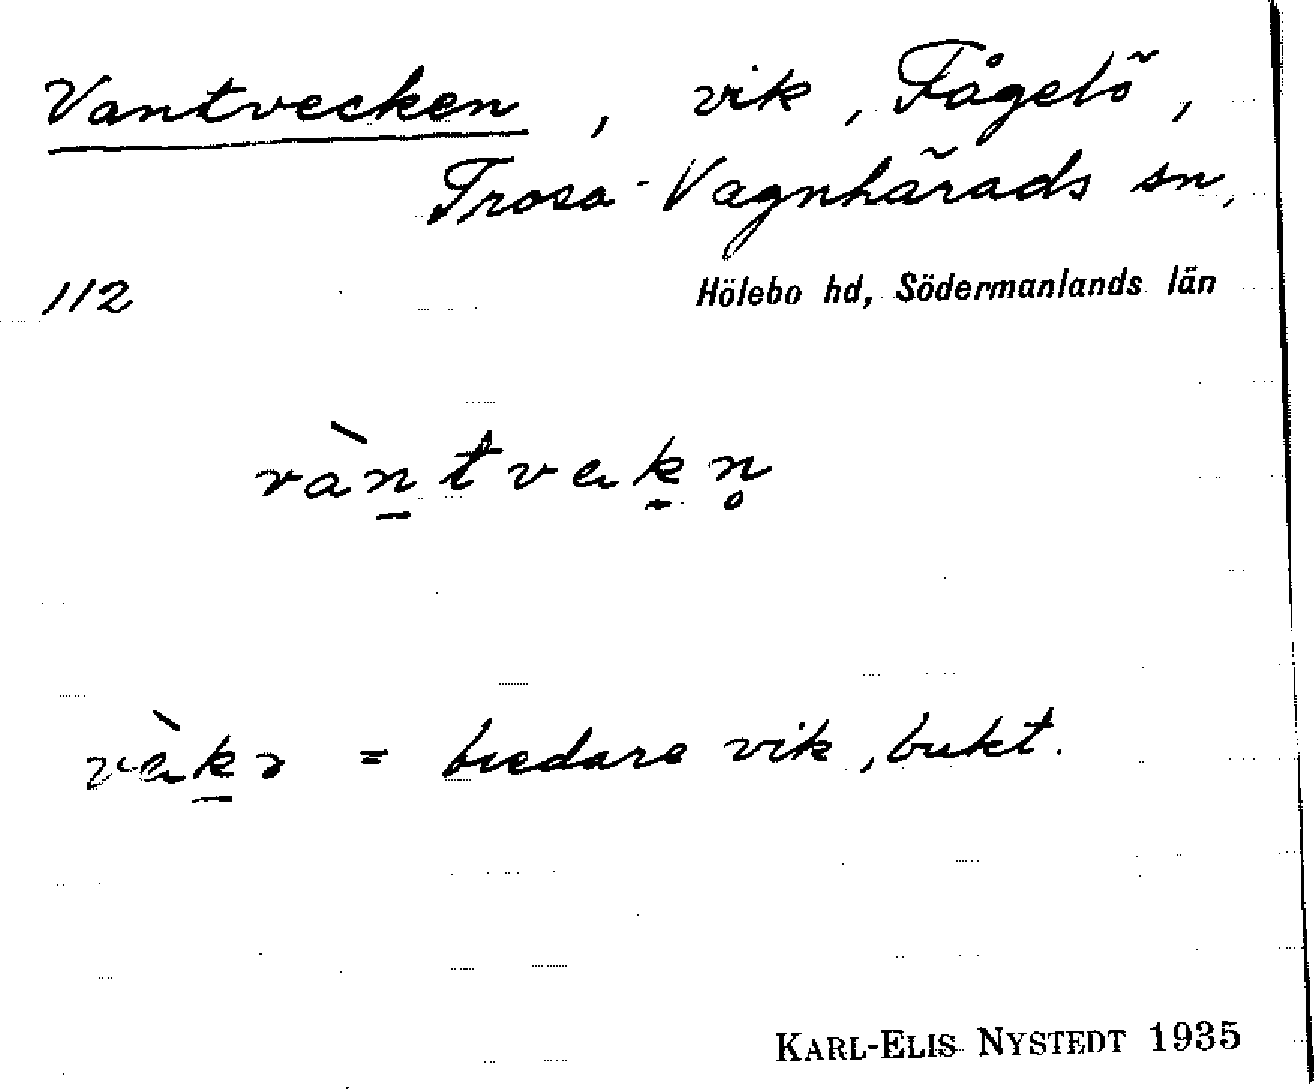 Vantvecken, vik, Fågelö,
Trosa-Vagnhärads sn,
112 Hölebo hd, Södermanlands län
vàn̠tvek̠n̥
vèk̠ə = bredare vik, bukt.
KARL-ELIS NYSTEDT 1935